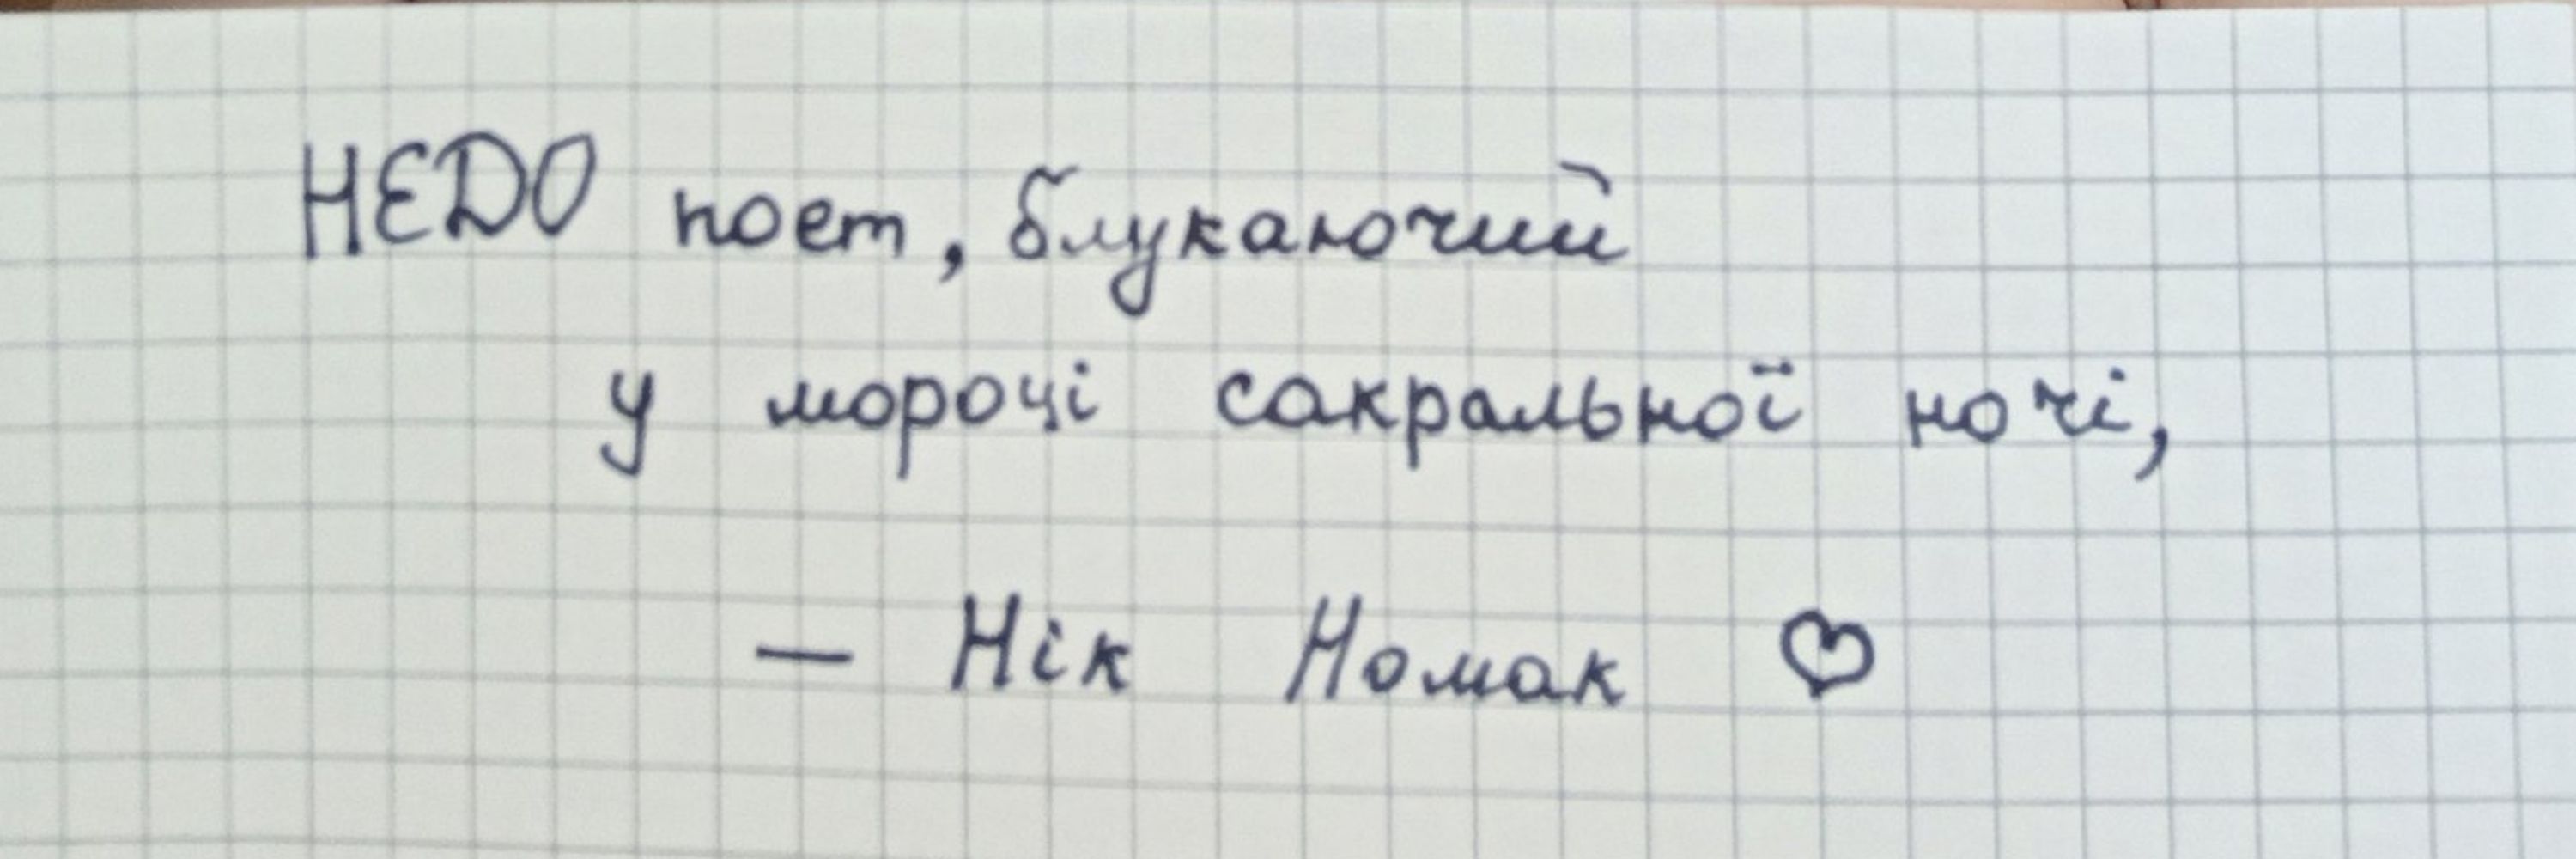 НЕДО поет, блукаючий
у мороці сакральної ночі,
— Нік Номак ♡